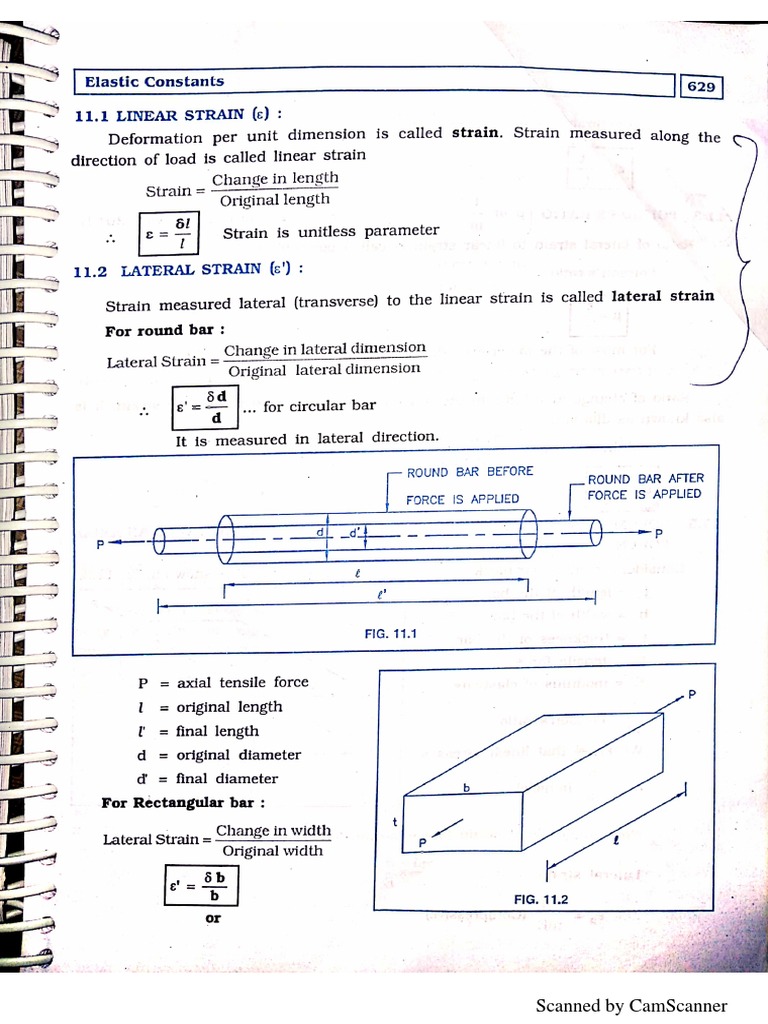 Elastic Constants
629
11.1 LINEAR STRAIN (ε) :
Deformation per unit dimension is called strain. Strain measured along the
direction of load is called linear strain
Strain = Change in length / Original length
∴ ε = δl / l Strain is unitless parameter
11.2 LATERAL STRAIN (ε') :
Strain measured lateral (transverse) to the linear strain is called lateral strain
For round bar :
Lateral Strain = Change in lateral dimension / Original lateral dimension
∴ ε' = δd / d ... for circular bar
It is measured in lateral direction.
ROUND BAR BEFORE
FORCE IS APPLIED
ROUND BAR AFTER
FORCE IS APPLIED
P
d
d'
P
ℓ
ℓ'
FIG. 11.1
P = axial tensile force
l = original length
l' = final length
d = original diameter
d' = final diameter
For Rectangular bar :
Lateral Strain = Change in width / Original width
ε' = δb / b
or
P
b
t
P
ℓ
FIG. 11.2
Scanned by CamScanner